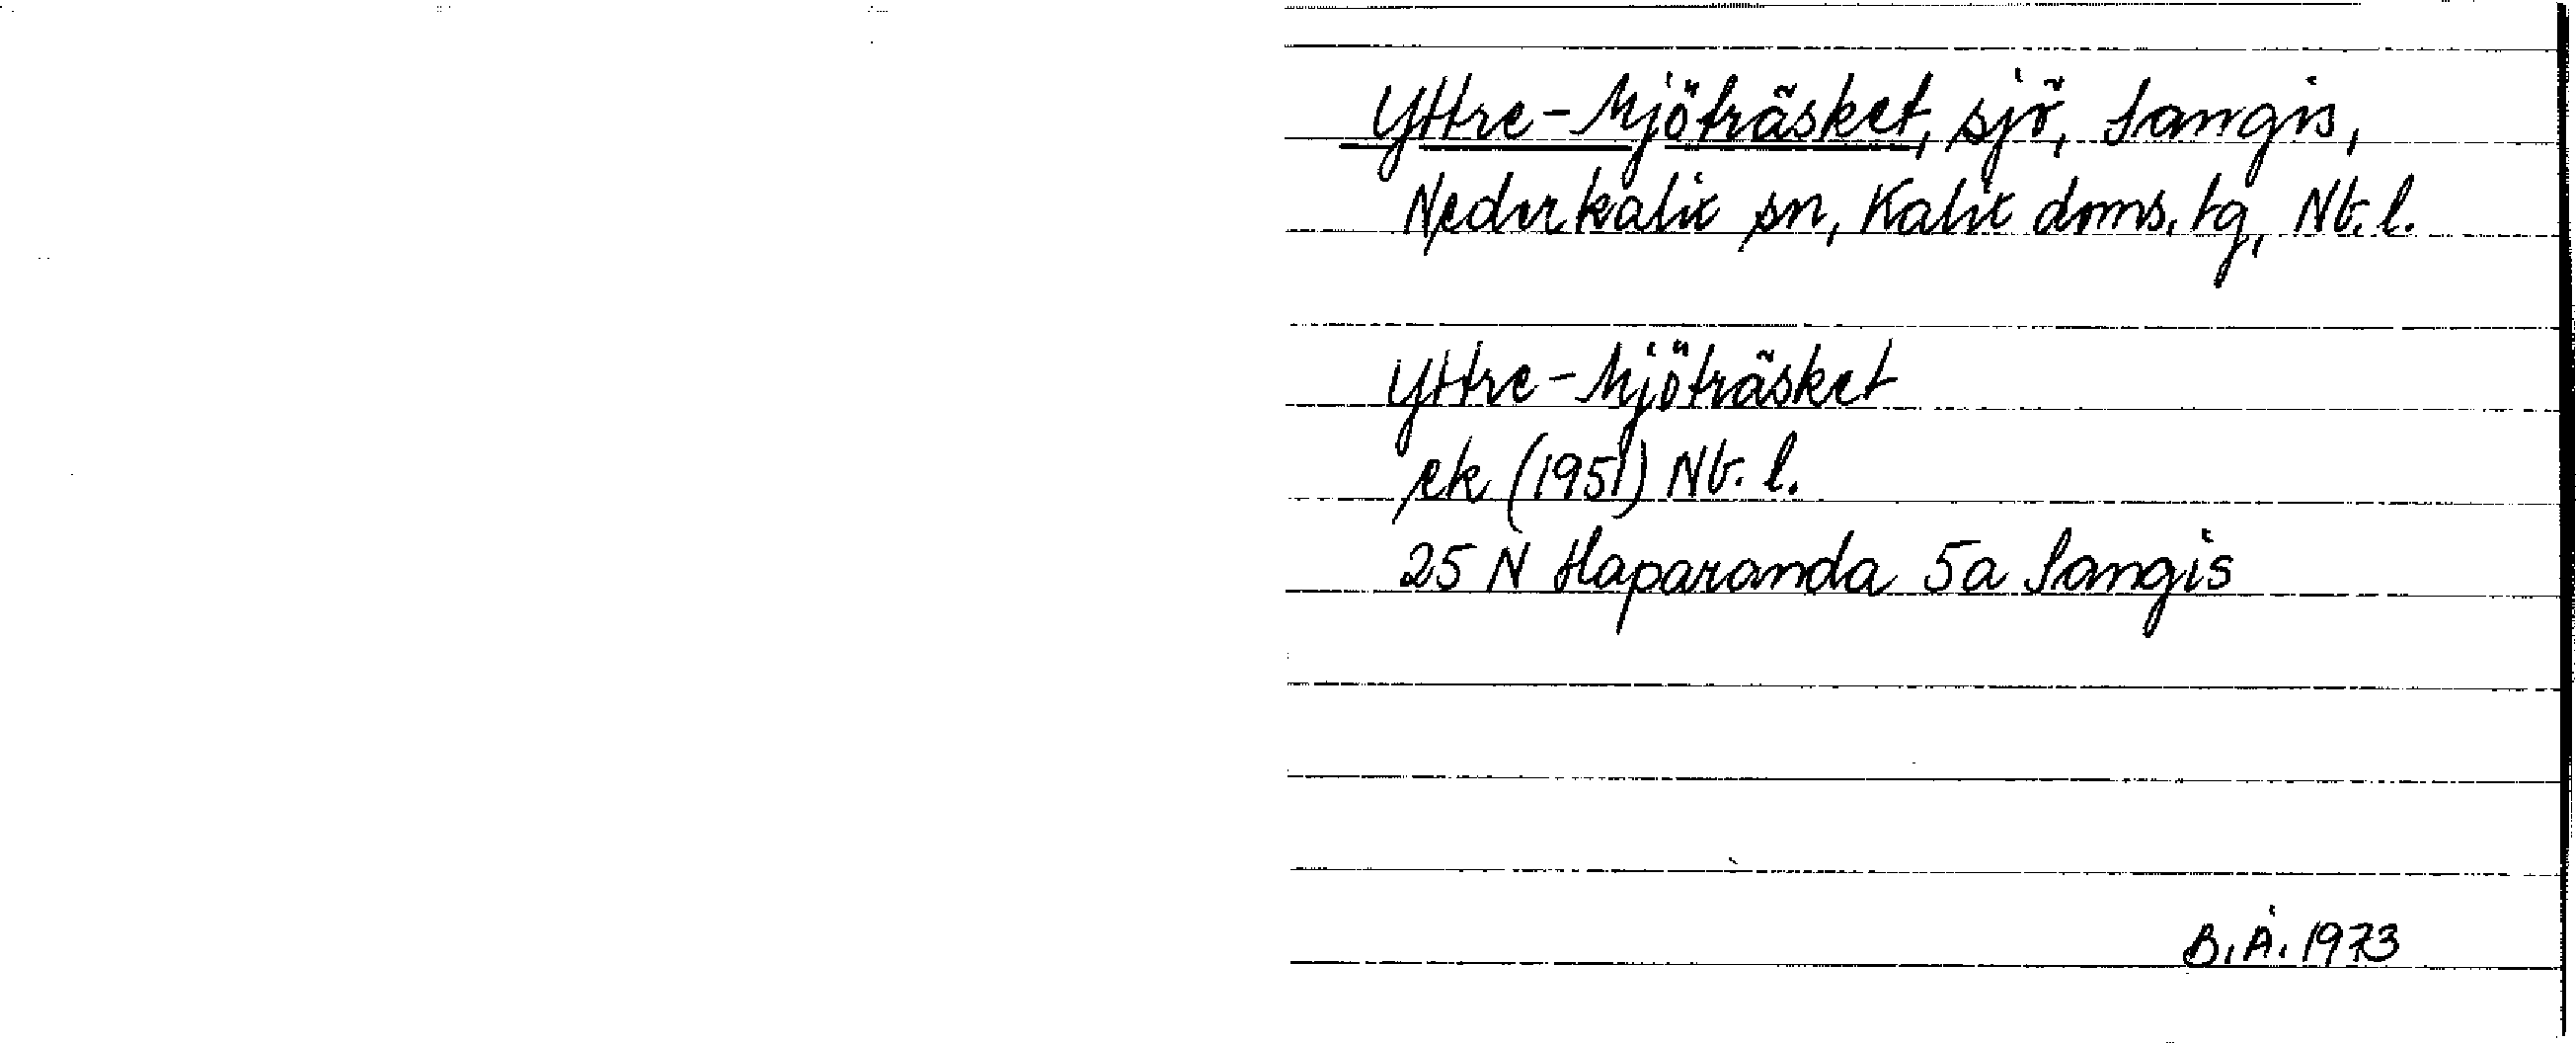 Yttre-Mjöträsket, sjö, Sangis,
Nederkalix sn, Kalix doms. tg, Nb. l.
Yttre-Mjöträsket
ek (1951) Nb. l.
25 N Haparanda 5a Sangis
B.Å. 1973